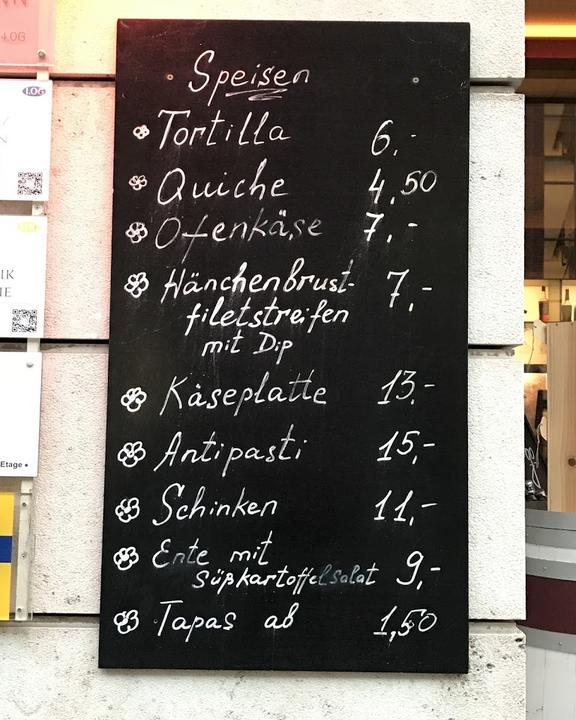 Speisen
Tortilla 6,-
Quiche 4,50
Ofenkäse 7,-
Hänchenbrust- 7,-
filetstreifen
mit Dip
Käseplatte 13,-
Antipasti 15,-
Schinken 11,-
Ente mit 9,-
Süßkartoffelsalat
Tapas ab 1,50
LOG
IK
IE
Etage